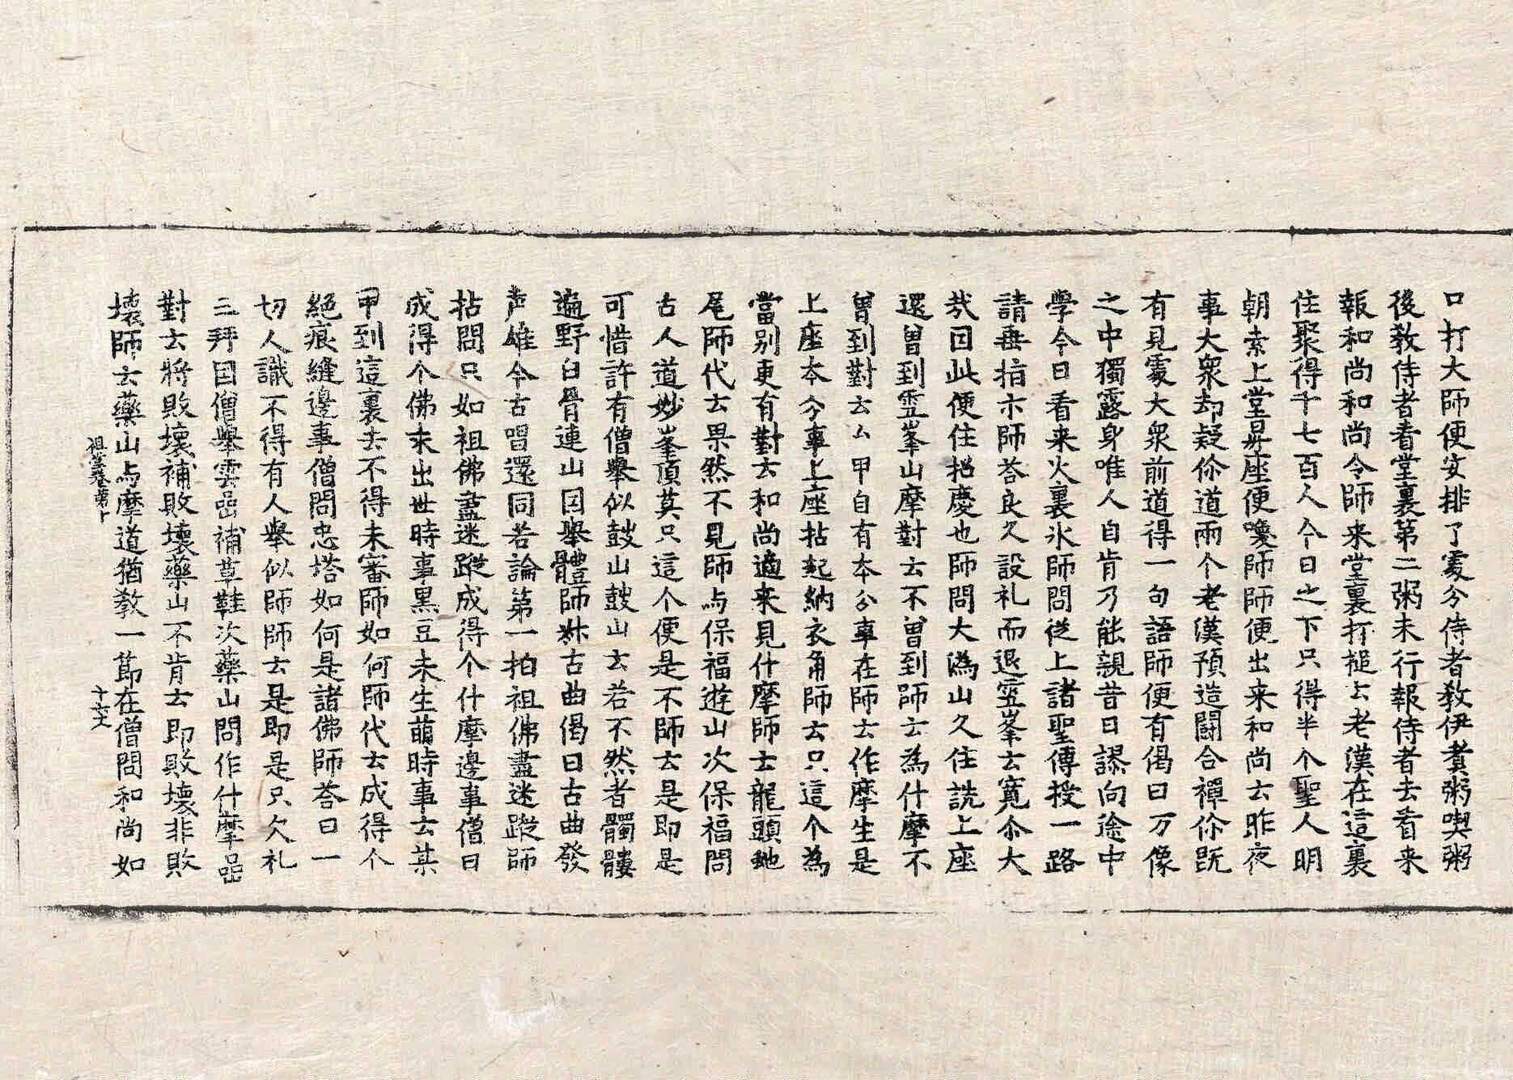 口打大師便安排了處分侍者教伊煮粥喫粥
後教侍者看堂裏第二粥未行報侍者去看来
報和尚和尚令師来堂裏打槌云老漢在這裏
住聚得千七百人今日之下只得半个聖人明
朝索上堂昇座便喚師師便出来和尚云昨夜
事大衆却疑你道兩个老漢預造鬪合禪你旣
有見處大衆前道得一句語師便有偈曰万像
之中獨露身唯人自肯乃能親昔日謬向途中
學今日看来火裏氷師問從上諸聖傳授一路
請垂指示師荅良久設礼而退雪峯云寬尒大
㢤因此便住招慶也師問大溈山久住詵上座
還曽到雪峯山摩對云不曽到師云為什摩不
曽到對云厶甲自有本分事在師云作摩生是
上座本分事上座拈起納衣角師云只這个為
當別更有對云和尚適来見什摩師云龍頭虵
尾師代云果然不見師与保福遊山次保福問
古人道妙峯頂莫只這个便是不師云是即是
可惜許有僧舉似鼓山鼓山云若不然者髑髏
遍野白骨連山因舉體師歎古曲偈曰古曲發
声雄今古唱還同若論第一拍祖佛盡迷蹤師
拈問只如祖佛盡迷蹤成得个什摩邊事僧曰
成得个佛未出世時事黒豆未生萠時事云某
甲到這裏去不得未審師如何師代云成得个
絕痕縫邊事僧問忠塔如何是諸佛師荅曰一
切人識不得有人舉似師師云是即是只欠礼
三拜因僧舉雲嵒補草鞋次藥山問作什摩嵒
對云將敗壞補敗壞藥山不肯云即敗壞非敗
壞師云藥山与摩道猶教一節在僧問和尚如
祖堂卷第十
十六丈